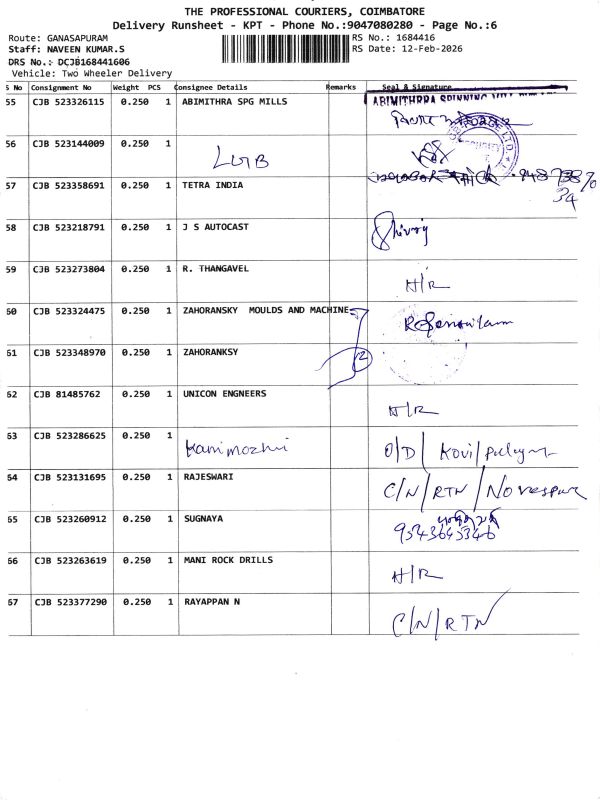 THE PROFESSIONAL COURIERS, COIMBATORE
Delivery Runsheet - KPT - Phone No.:9047080280 - Page No.:6
Route: GANASAPURAM RS No.: 1684416
Staff: NAVEEN KUMAR.S RS Date: 12-Feb-2026
DRS No.: DCJB168441606
Vehicle: Two Wheeler Delivery
S No Consignment No Weight PCS Consignee Details Remarks Seal & Signature
55 CJB 523326115 0.250 1 ABIMITHRA SPG MILLS ABIMITHRRA SPINNING
56 CJB 523144009 0.250 1
57 CJB 523358691 0.250 1 TETRA INDIA
58 CJB 523218791 0.250 1 J S AUTOCAST
59 CJB 523273804 0.250 1 R. THANGAVEL H/R
60 CJB 523324475 0.250 1 ZAHORANSKY MOULDS AND MACHINE
61 CJB 523348970 0.250 1 ZAHORANKSY 2
62 CJB 81485762 0.250 1 UNICON ENGNEERS H/R
63 CJB 523286625 0.250 1 Kanimozhi O/D/
64 CJB 523131695 0.250 1 RAJESWARI C/N/RTN/
65 CJB 523260912 0.250 1 SUGNAYA
9543645346
66 CJB 523263619 0.250 1 MANI ROCK DRILLS H/R
67 CJB 523377290 0.250 1 RAYAPPAN N C/N/RTN